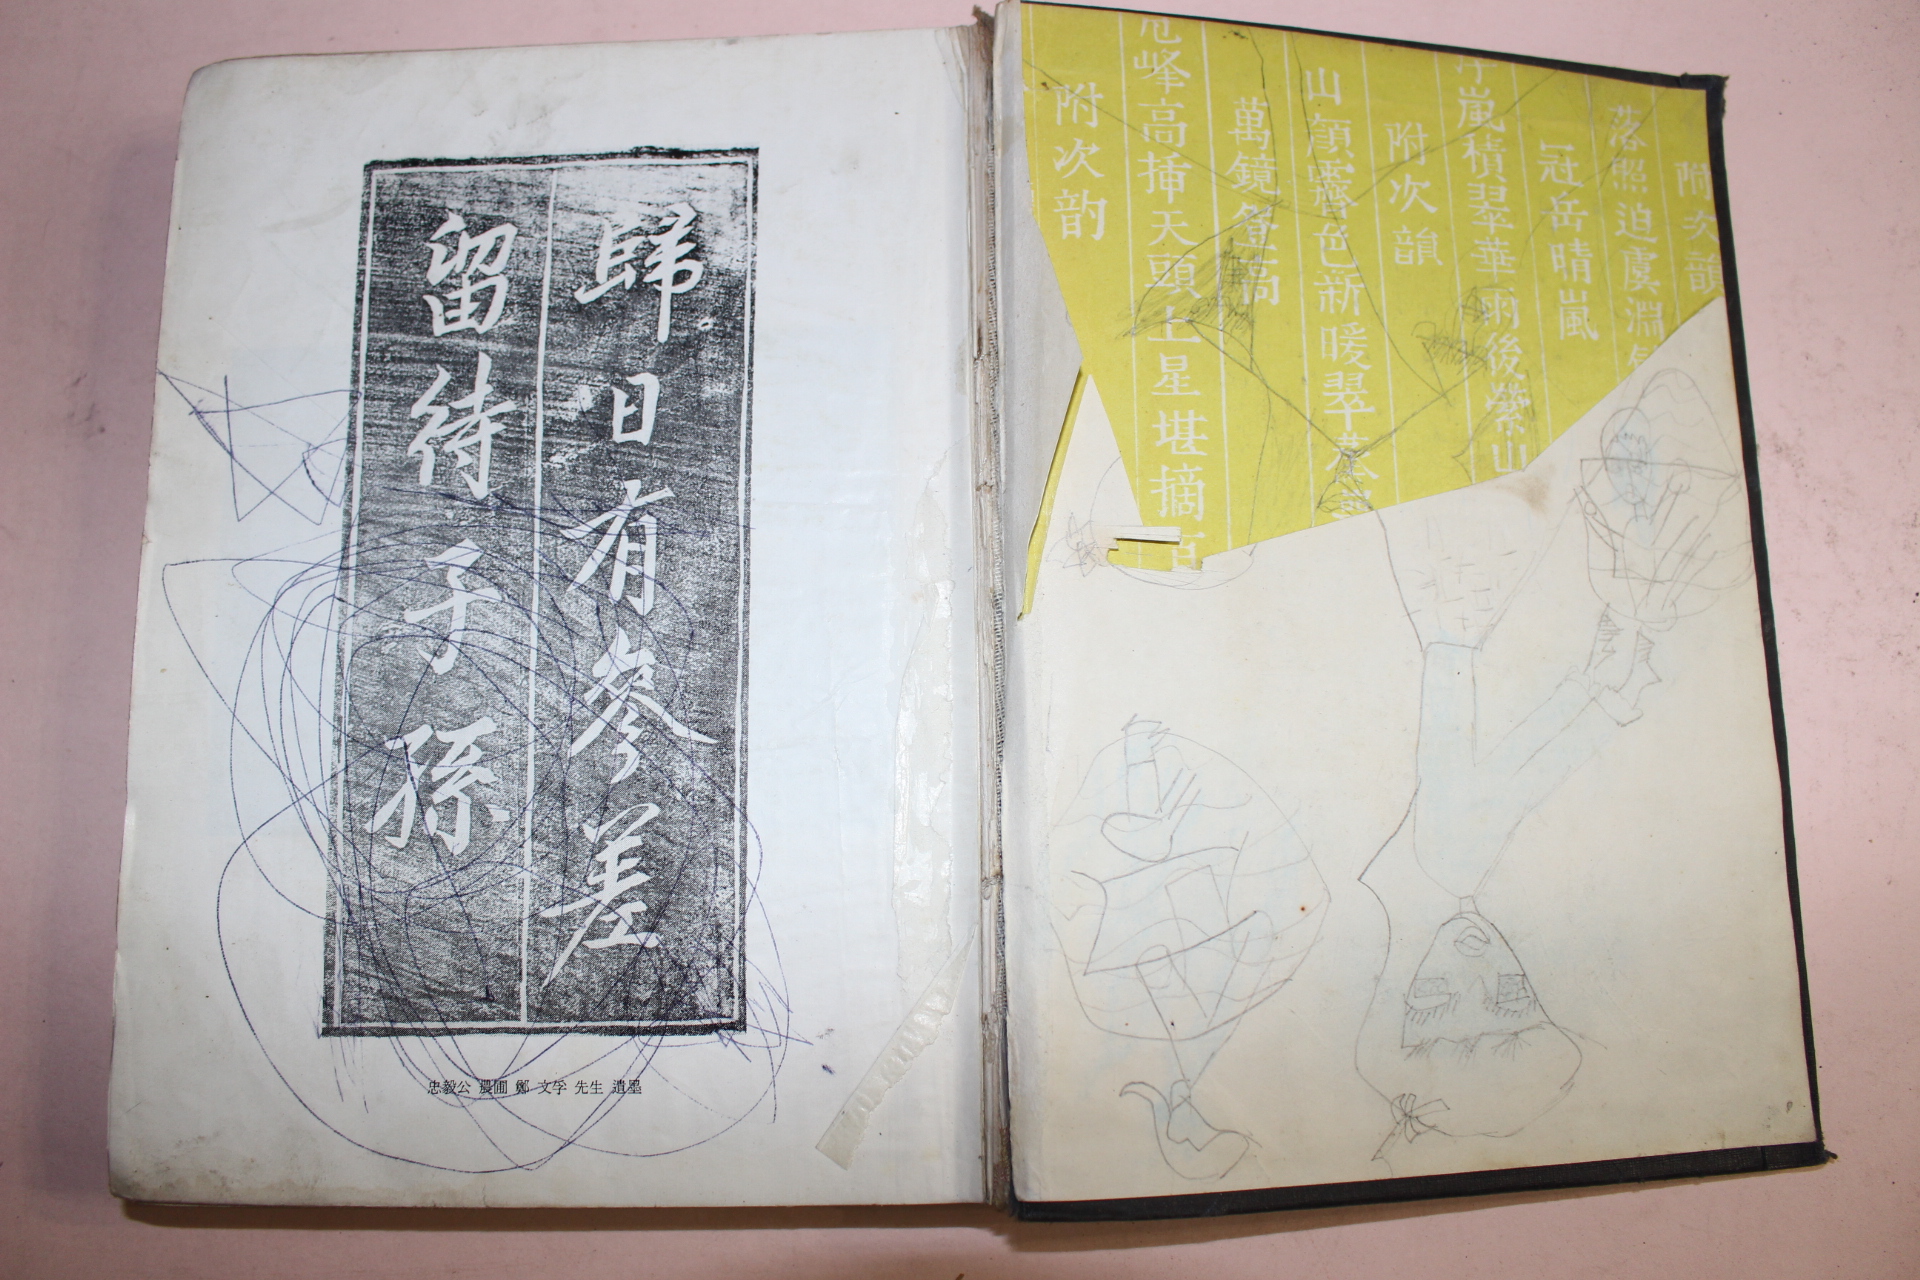 歸日有參差
留待子孫
忠毅公 農圃 鄭 文孚 先生 遺墨
附次韻
落照迫虞淵
冠岳晴嵐
嵐積翠華 雨後縈山
附次韻
山顔霽色新暖翠
萬鏡登高
峰高揷天頭上星堪摘
附次韵